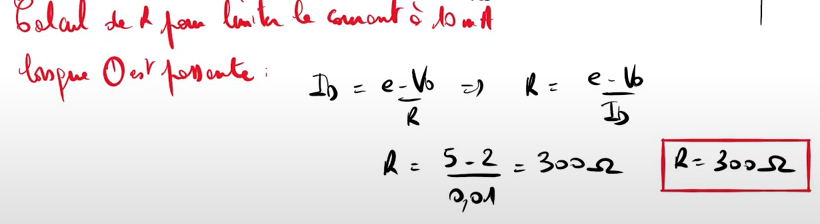 Calcul de R pour limiter le courant à 10 mA
lorsque D est passante :
I_D = (e - V_0)/R => R = (e - V_0)/I_D
R = (5 - 2)/0,01 = 300 Ω
R = 300 Ω